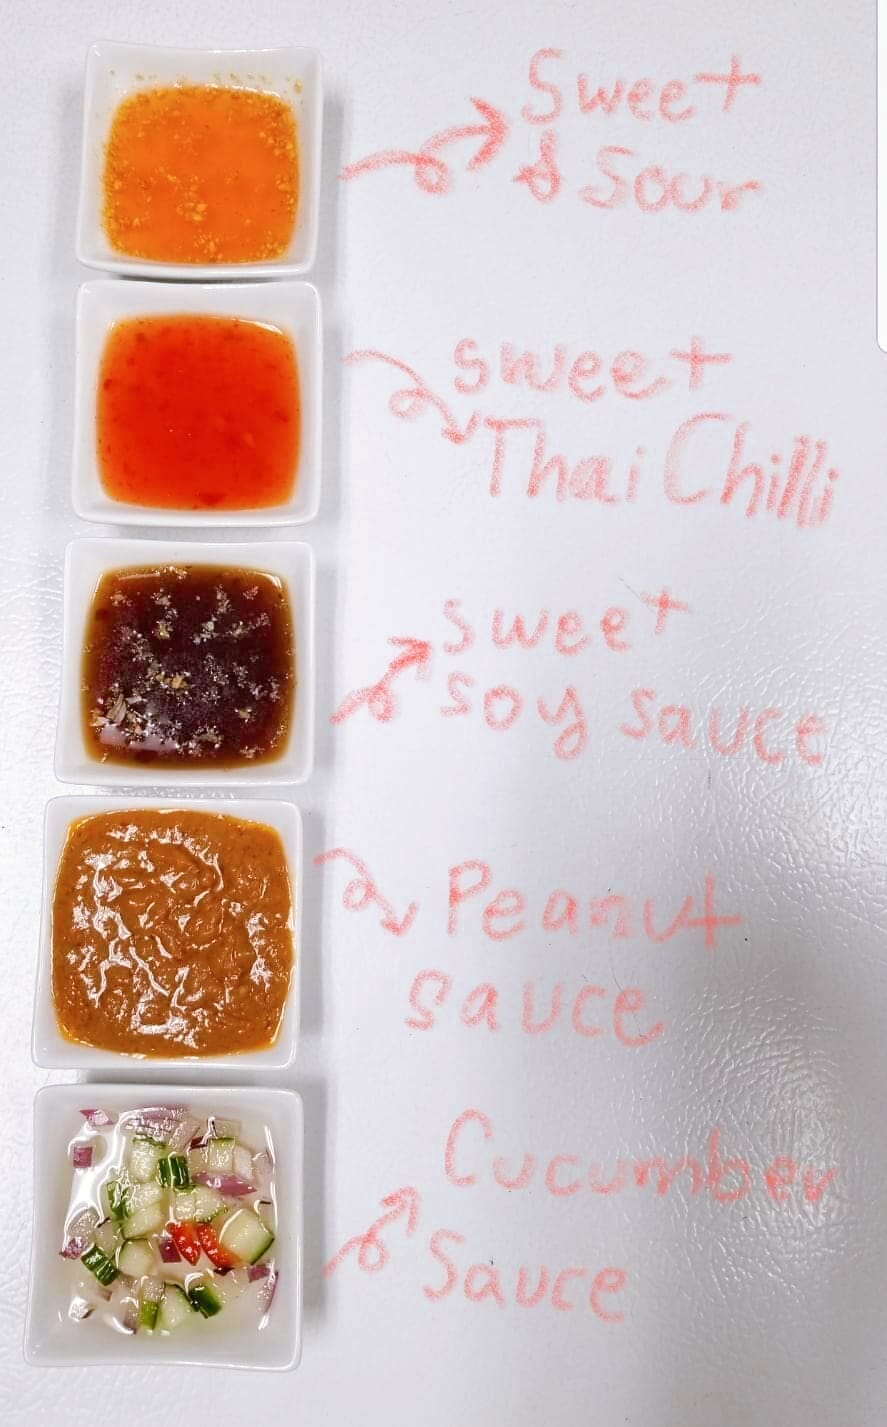 Sweet
& Sour
sweet
Thai Chilli
sweet
soy sauce
Peanut
sauce
Cucumber
Sauce